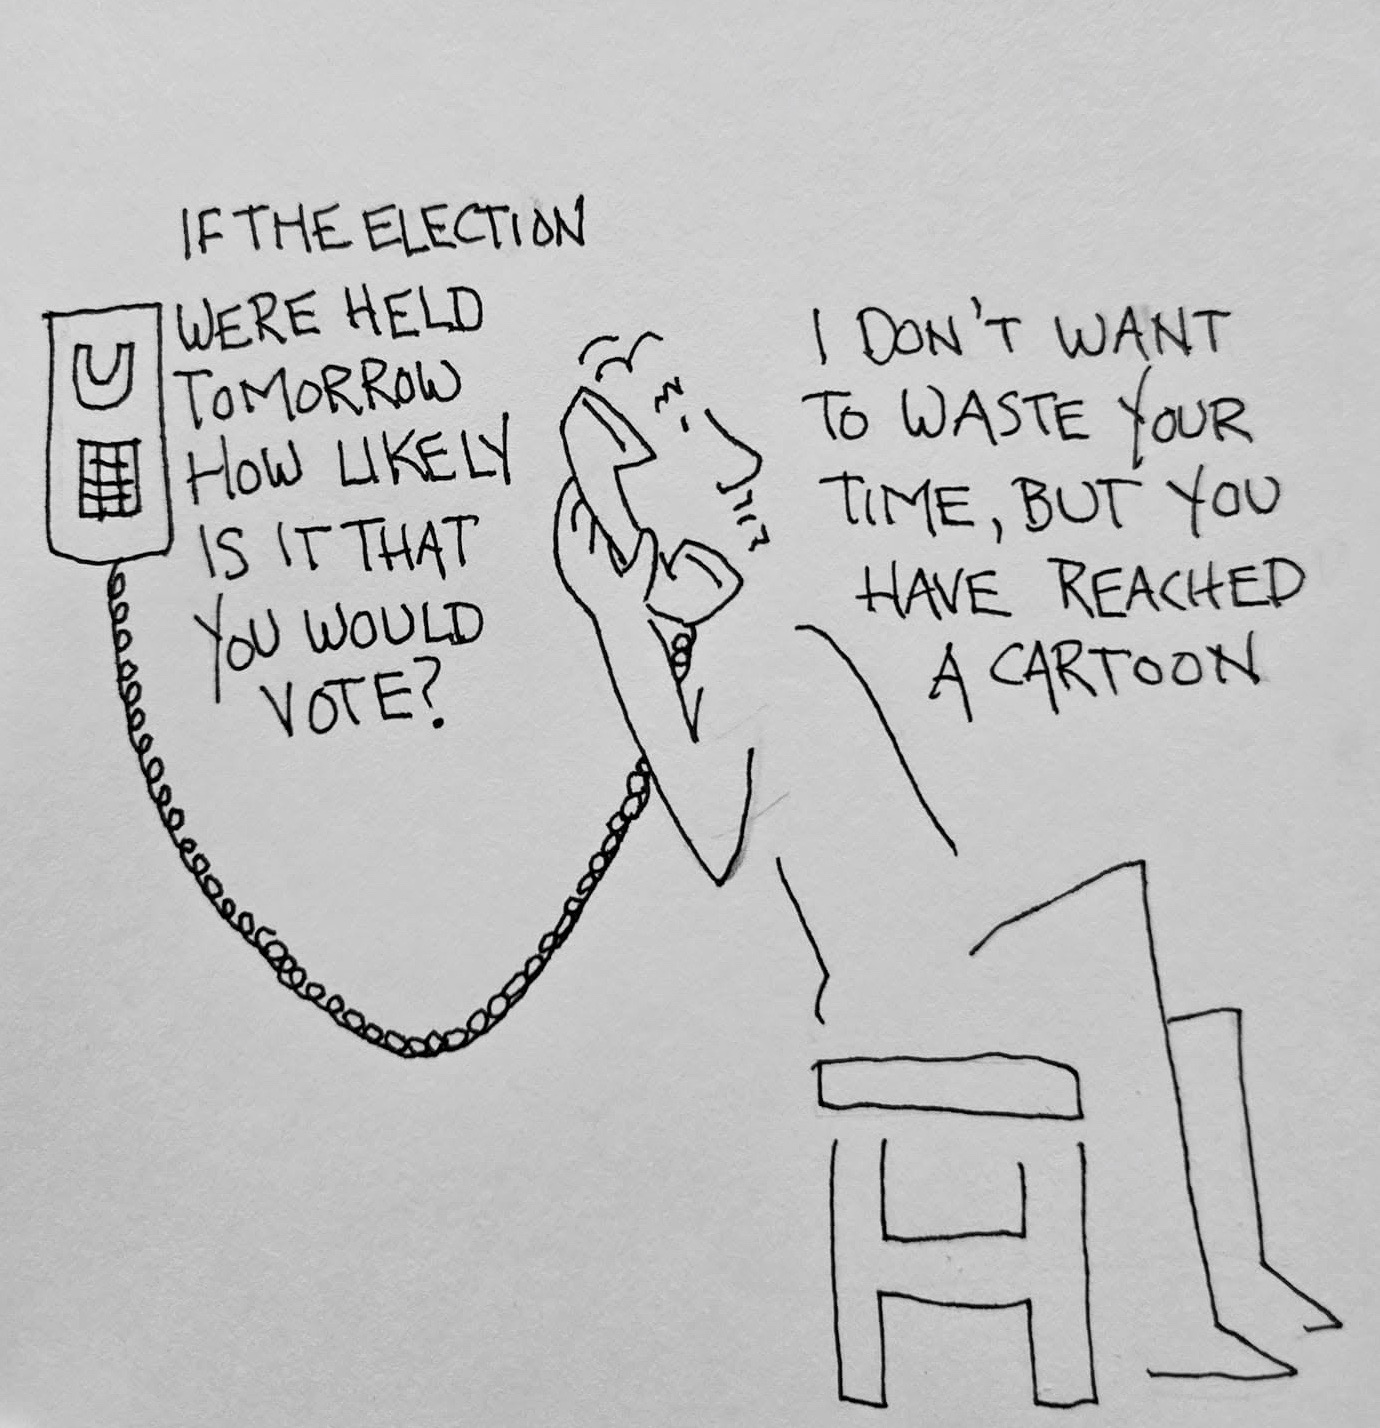 IF THE ELECTION
WERE HELD
TOMORROW
HOW LIKELY
IS IT THAT
YOU WOULD
VOTE?
I DON'T WANT
TO WASTE YOUR
TIME, BUT YOU
HAVE REACHED
A CARTOON